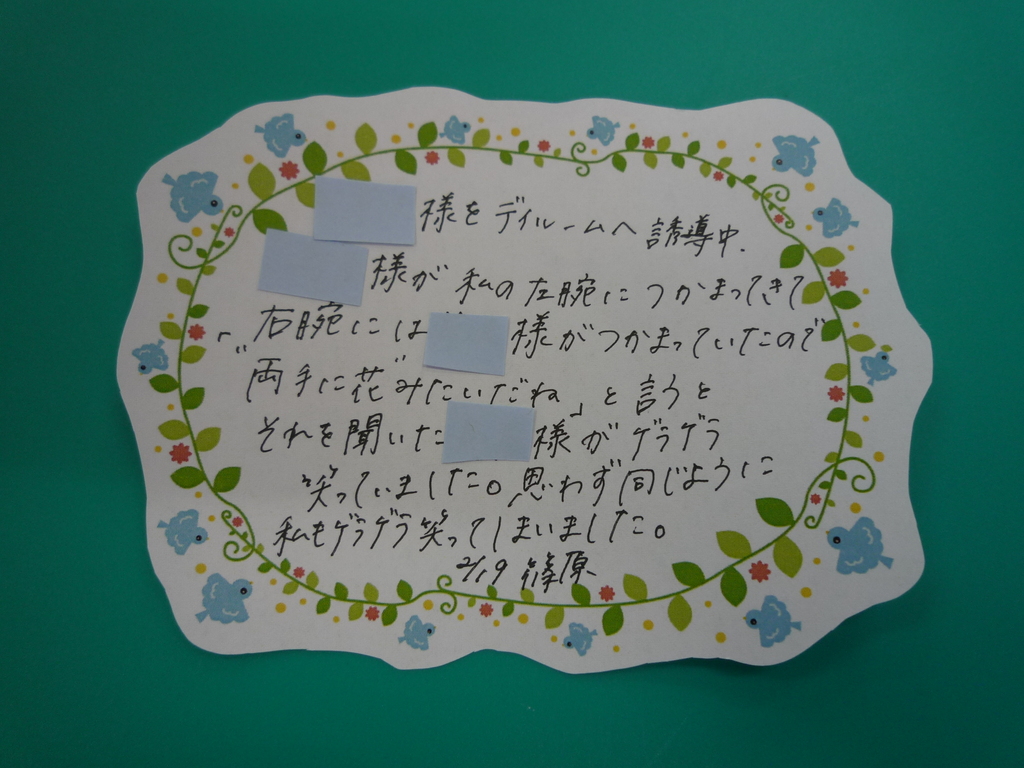 様をデイルームへ誘導中.
様が私の左腕につかまってきて
、右腕には 様がつかまっていたので
"両手に花"みたいだね」と言うと
それを聞いた 様がゲラゲラ
笑っていました。思わず同じように
私もゲラゲラ笑ってしまいました。
2/19 篠原